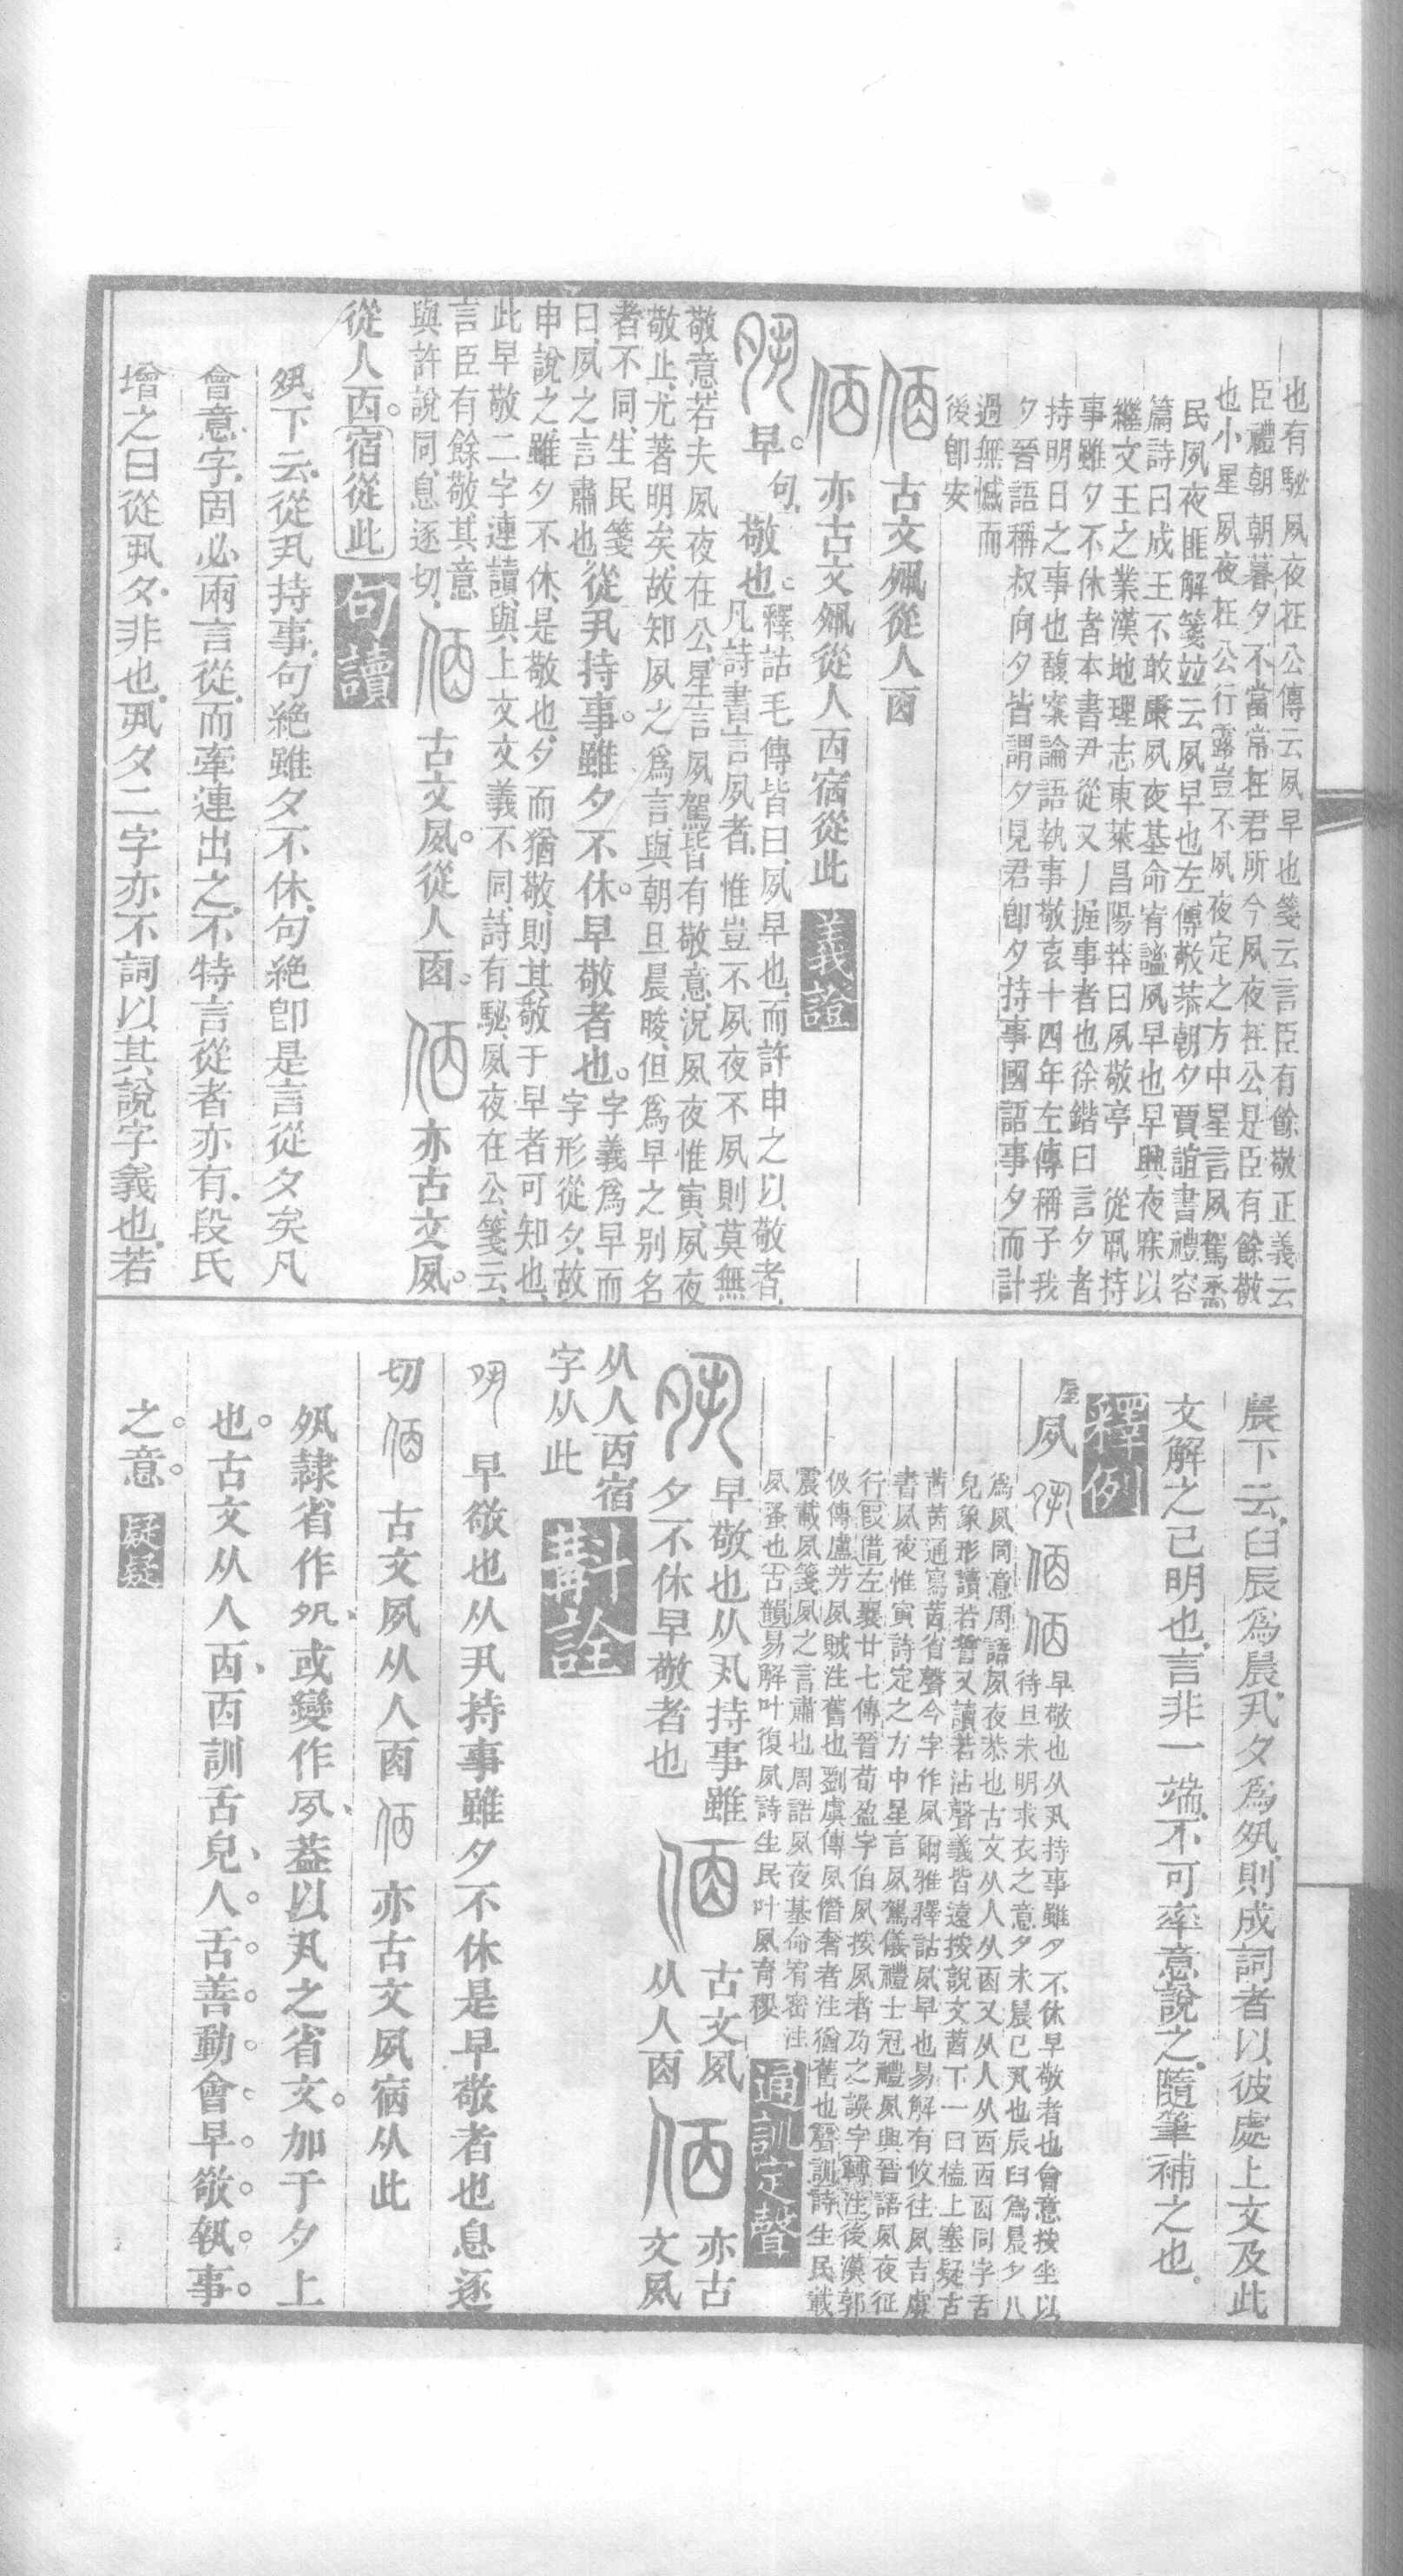 也有駜夙夜在公傳云夙早也箋云言臣有餘敬正義云
臣禮朝朝暮夕不當常在君所今夙夜在公是臣有餘敬
也小星夙夜在公行露豈不夙夜定之方中星言夙駕烝
民夙夜匪解箋竝云夙早也左傳敬恭朝夕賈誼書禮容
篇詩曰成王不敢康夙夜基命宥謐夙早也早興夜寐以
繼文王之業漢地理志東萊昌陽莽曰夙敬亭 從丮持
事雖夕不休者本書尹從又丿握事者也徐鍇曰言夕者
持明日之事也馥案論語執事敬哀十四年左傳稱子我
夕晉語稱叔向夕皆謂夕見君卽夕持事國語事夕而計
過無憾而
後卽安
𠈇 古文夙從人㐁
𠉦 亦古文夙從人西宿從此 義證
𡖊 早。句。敬也。釋詁毛傳皆曰、夙早也、而許申之以敬者、
凡詩書言夙者、惟豈不夙夜不夙則莫無
敬意、若夫夙夜在公、星言夙駕皆有敬意、況夙夜惟寅、夙夜
敬止、尤著明矣、故知夙之爲言與朝旦晨晙、但爲早之別名
者不同、生民箋
曰、夙之言肅也、從丮持事。雖夕不休。早敬者也。字義爲早而
字形從夕、故
申說之雖夕不休、是敬也、夕而猶敬、則其敬于早者可知也、
此早敬二字連讀、與上文文義不同、詩有駜、夙夜在公、箋云、
言臣有餘敬、其意
與許說同、息逐切、 𠈇 古文夙。從人㐁。 𠉦 亦古文夙。
從人西。宿從此 句讀
夙下云、從丮持事、句絕雖夕不休、句絕卽是言從夕矣凡
會意字、固必兩言從、而牽連出之、不特言從者亦有、段氏
增之曰從丮夕、非也、丮夕、二字亦不詞以其說字義也、若
晨下云、𦥑辰爲晨、丮夕爲夙、則成詞者以彼處上文及此
文解之已明也、言非一端、不可率意說之、隨筆補之也。
釋例
屋 夙 𡖊 𠈇 𠉦 早敬也从丮持事雖夕不休早敬者也會意按坐以
待旦未明求衣之意夕未晨已丮也辰𦥑爲晨夕八
爲夙同意周語夙夜恭也古文从人从㐁又从人从西西㐁同字舌
皃象形讀若誓又讀若沾聲義皆遠按說文㐁下一曰榼上塞疑古
茵㐁通寫茵省聲今字作夙爾雅釋詁夙早也易解有攸往夙吉虞
書夙夜惟寅詩定之方中星言夙駕儀禮士冠禮夙興晉語夙夜征
行叚借左襄廿七傳晉荀盈字伯夙按夙者夃之誤字轉注後漢郭
伋傳盧芳夙賊注舊也劉虞傳夙僭奢者注猶舊也聲訓詩生民載
震載夙箋夙之言肅也周語夙夜基命宥密注
夙蚤也古韻易解叶復夙詩生民叶夙育稷 通訓定聲
𡖊 早敬也从丮持事雖
夕不休早敬者也 𠈇 古文夙
从人㐁 𠉦 亦古
文夙
从人西宿
字从此 斠詮
𡖊 早敬也从丮持事雖夕不休是早敬者也息逐
切 𠈇 古文夙从人㐁 𠉦 亦古文夙宿从此
夙隸省作夙、或變作夙、葢以丮之省文。加于夕上
也。古文从人西、西訓舌皃、人舌善動會早敬執事
之意。 疑疑